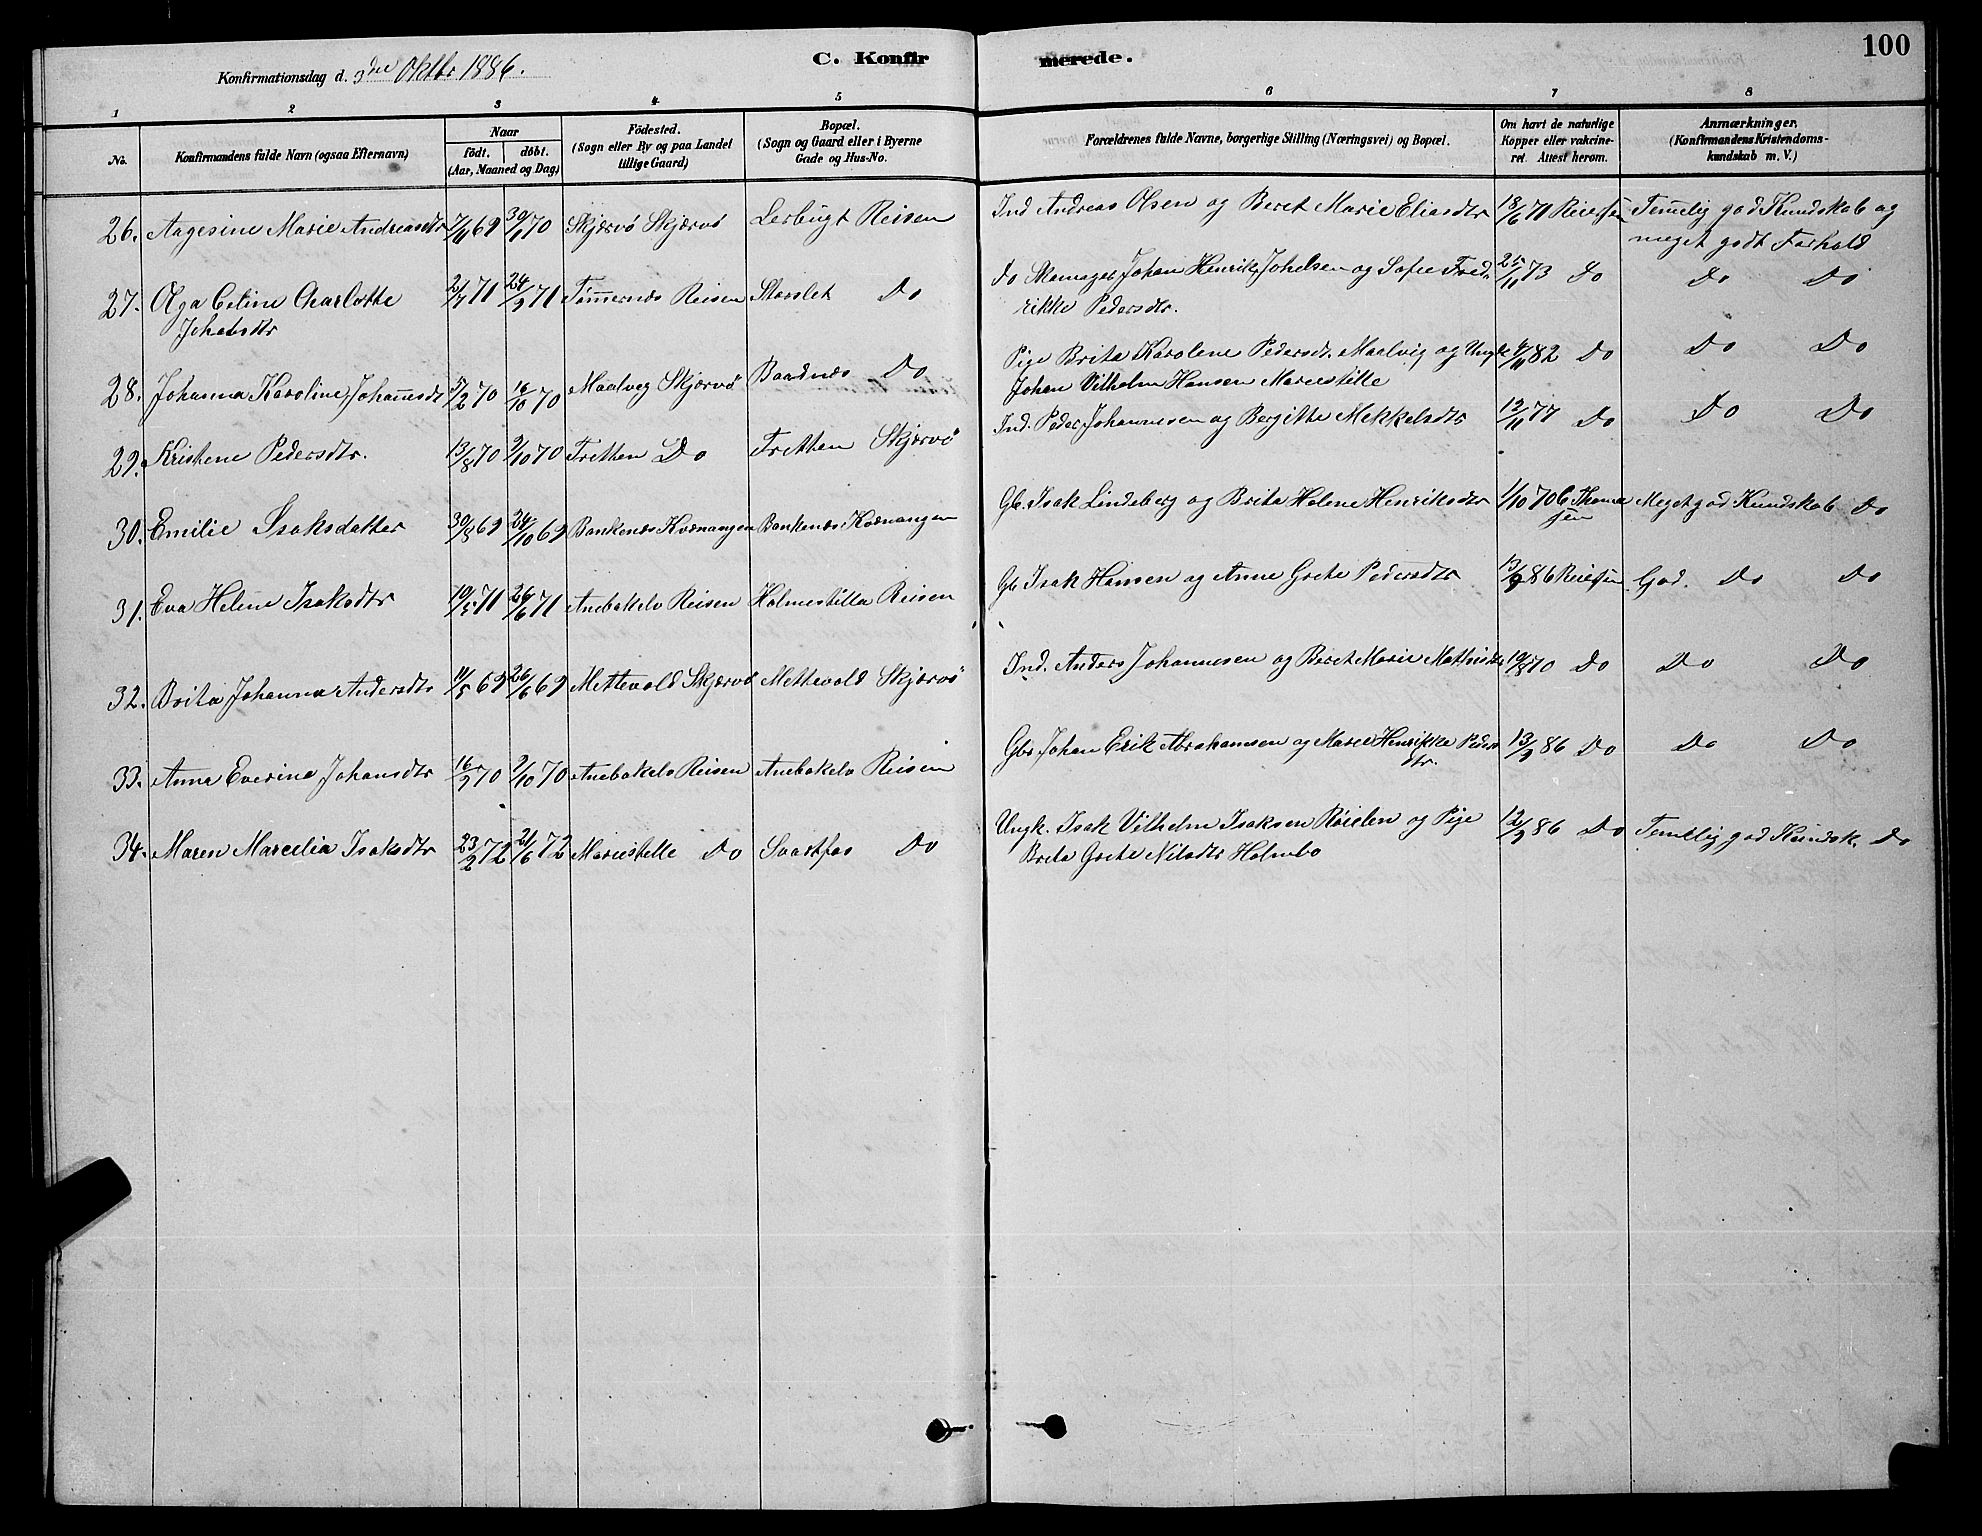 100
Konfirmationsdag d. 3die Oktbr 1886.
C. Konfirmerede.
1 2 3 4 5 6 7 8
No.
Konfirmandens fulde Navn (ogsaa Efternavn)
Naar
födt. döbt.
(Aar, Maaned og Dag)
Födested.
(Sogn eller By og paa Landet
tillige Gaard)
Bopæl.
(Sogn og Gaard eller i Byerne
Gade og Hus-No.
Forældrenes fulde Navne, borgerlige Stilling (Næringsvei) og Bopæl.
Om havt de naturlige
Kopper eller vakcine-
ret. Attest herom.
Anmærkninger.
(Konfirmandens Kristendoms-
kundskab m. V.)
26. Aagesine Marie Andreasdtr 7/11 69 30/1 70 Skjærvö Skjærvö Lerbugt Reisen Ind Andreas Olsen og Beret Marie Eliasdtr 18/6 71 Reiersen Temelig god Kundskab og
meget godt Forhold
27. Olga Celine Charlotte 2/7 71 24/9 71 Tömmernes Reisen Storslet Do Do Skomager Johan Henrik Johelsen og Sofie Fred- 25/11 73 Do Do Do
Johelsdtr rikke Pedersdtr.
28. Johanna Karoline Johannesdt 5/2 70 16/10 70 Maalveg Skjærvö Baadnes Do Pige Brita Karolene Pedersdt. Maalvig og Ungk 4/11 82 Do Do Do
Johan Vilhelm Hansen Mariestille
29. Kristene Pedersdtr. 13/8 70 2/10 70 Fretten Do Fretten Skjærvö Ind. Peder Johannesen og Bergitte Mekkelsdtr 12/11 77 Do Do Do
30. Emilie Isaksdatter 30/8 69 24/10 69 Bankenes Kvænangen Bankenes Kvænangen Gb. Isak Lindeberg og Brita Helene Henriksdtr 1/10 70 G Thoma Meget god Kundskab Do
sen
31. Eva Helene Isaksdtr 19/5 71 26/6 71 Anebakelv Reisen Holmestilla Reisen Gb Isak Hansen og Anne Grete Pedersdtr 13/9 86 Reiersen God. Do Do
32. Brita Johanna Andersdtr 11/5 69 26/6 69 Mettevold Skjærvö Mettevold Skjærvö Ind. Anders Johannesen og Beret Marie Mathisdtr 19/8 70 Do Do Do
33. Anna Everina Johansdtr 16/2 70 2/10 70 Anebakelv Reisen Anebakelv Reisen Gbr Johan Erik Abrahamsen og Marie Henrikke Peders 13/9 86 Do Do Do
dtr.
34. Maren Marcelia Isaksdtr 23/2 72 21/6 72 Mariestille Do Svartfos Do Ungk. Isak Vilhelm Isaksen Röielen og Pige 12/9 86 Do Temelig god Kundsk. Do
Brita Grete Nilsdtr Holmbo